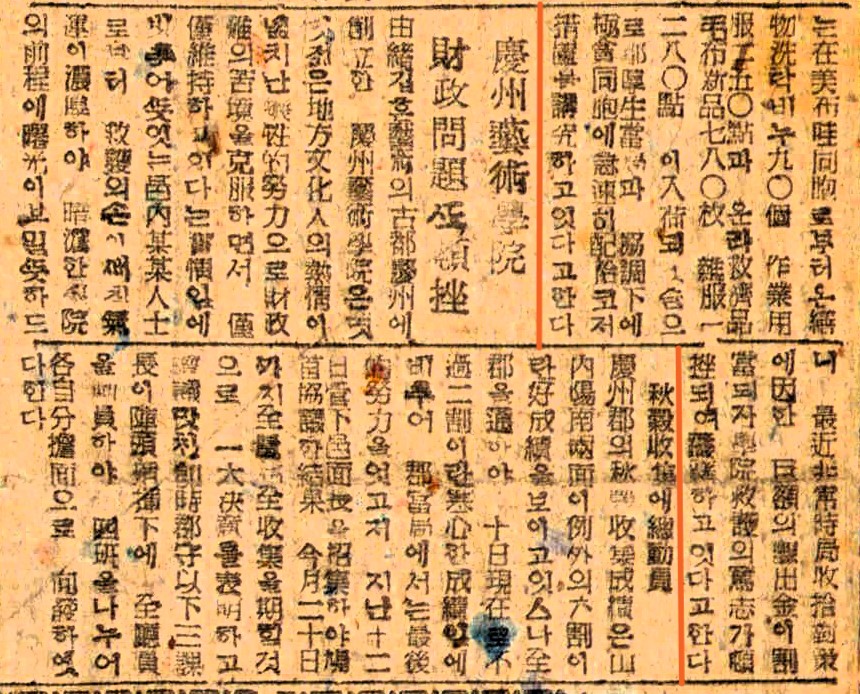 는在美布哇同胞로부터온繕
物洗탁비누九〇個 作業用
服二五〇點과 온라救濟品
毛布新品七八〇枚 雜服一
二八〇點 이入荷되 슴으
로 郡厚生當 과 協調下에
極貧同胞에急速히配給코저
措置를講究하고잇다고한다
慶州藝術學院
財政問題로頓挫
由緖깁흔藝術의古都慶州에
創立한 慶州藝術學院은몃
젊은地方文化人의熱情이
넘치난犧牲的努力으로財政
難의苦境을克服하면서 僅
僅維持하고잇다는實情임에
비추어 뜻잇는邑內某某人士
로부터 救護의손이 氣
運이濃厚하야 暗澹한 院
의前程에曙光이보일듯하드
니 最近非常時局收拾對策
에因한 巨額의醵出金이割
當되자學院救護의篤志가頓
挫되여 하고잇다고한다
秋穀收集에總動員
慶州郡의秋穀收集成績은山
內陽南兩面이例外의六割이
란好成績을보이고잇스나全
郡을通하야 十日現在로不
過二割이란寒心한成績임에
비추어 郡當局에서는最後
的努力을엇고저 지난十二
日管下邑面長을招集하야鳩
首協議한結果 今月二十日
까지全 全收集을期할것
으로 一大決意를表明하고
卽時郡守以下三課
長이陣頭指揮下에 全廳員
을動員하야 四班을나누어
各自分擔面으로 向發하엿
다한다